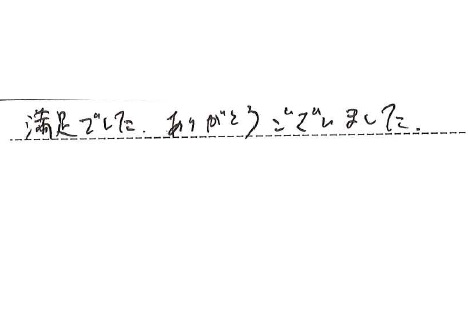 満足でした。ありがとうございました。